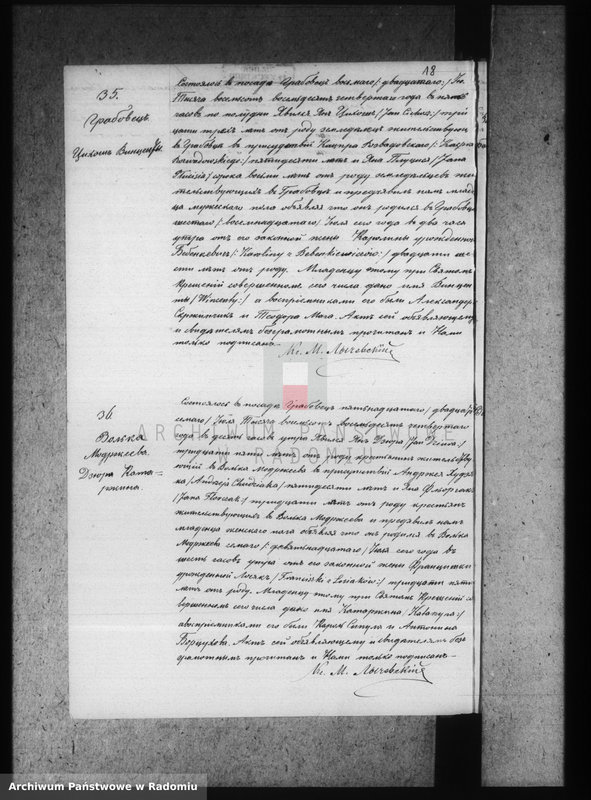 18
35.
Грабовецъ
Цихошъ Винценты.
Состоялось в посаде Грабовецъ восьмаго /: двадцатаго :/ Iюля
Тысяча восемсотъ восемьдесятъ четвертаго года в пять
часовъ по полудни Явился Янъ Цихошъ /: Jan Cichosz :/ трид-
цати трехъ летъ от роду земледелецъ жительствующiй
в Грабовце в присутствiи Каспра Возвадовскаго /: Kaspra
:/ пятидесяти летъ и Яна /: Jana
:/ сорока восьми летъ отъ роду земледельцевъ жи-
тельствующихъ в Грабовце и предъявилъ намъ младен-
ца мужескаго пола объявляя что онъ родился в Грабовце
шестаго /: восемнадцатаго :/ Iюля сего года в два часа
утра отъ его законной жены Каролины урожденной
Бебенкевичъ /: Karoliny z Bebenkiewiczow :/ двадцати ше-
сти летъ отъ роду. Младенцу этому при Святомъ
Крещенiи совершенномъ сего числа дано имя Винцен-
ты /: Wincenty :/ а воспрiемниками его были Александръ
и Теодора Мага. Актъ сей объявляющему
и свидетелямъ безграмотнымъ прочитанъ и Нами
только подписанъ.
Кс. М. Лычовскiй
36
Волька
Модржеева.
Дзюра Ката-
ржина.
Состоялось в посаде Грабовецъ пятьнадцатаго /: двадцать
седмаго :/ Iюля Тысяча восемсотъ восемьдесятъ четвертаго
года в десять часовъ утра Явился Янъ Дзюра /: Jan Dziura :/
тридцати пяти летъ отъ роду крестьянинъ жительству-
ющiй в Вольке Модржеева в присутствiи Андржея Худзяка
/: Andrzeja Chudziaka :/ пятидесяти летъ и Яна Флорчакъ
/: Jana Florczak :/ тридцати летъ отъ роду крестьянъ
жительствующихъ в Вольке Модржеева и предъявилъ намъ
младенца женскаго пола объявляя что онъ родился в Вольке
Модржеева седмаго /: девятьнадцатаго :/ Iюля сего года въ
шесть часовъ утра отъ его законной жены Францишки
урожденной Лосякъ /: Franciszki z Łosiaków :/ тридцати пяти
летъ отъ роду. Младенцу этому при Святомъ Крещенiи со-
вершенномъ сего числа дано имя Катаржина /: Katarzyna :/
а воспрiемниками его были Карлъ и Антонина
. Актъ сей объявляющему и свидетелямъ без-
грамотнымъ прочитанъ и Нами только подписанъ
Кс. М. Лычовскiй
ARCHIWUM PAŃSTWOWE
W RADOMIU
Archiwum Państwowe w Radomiu